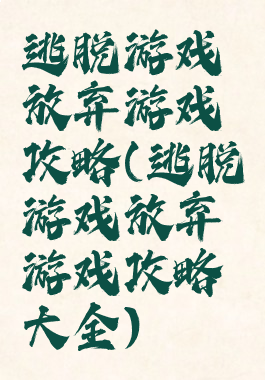 逃脱游戏
放弃游戏
攻略(逃脱
游戏放弃
游戏攻略
大全)